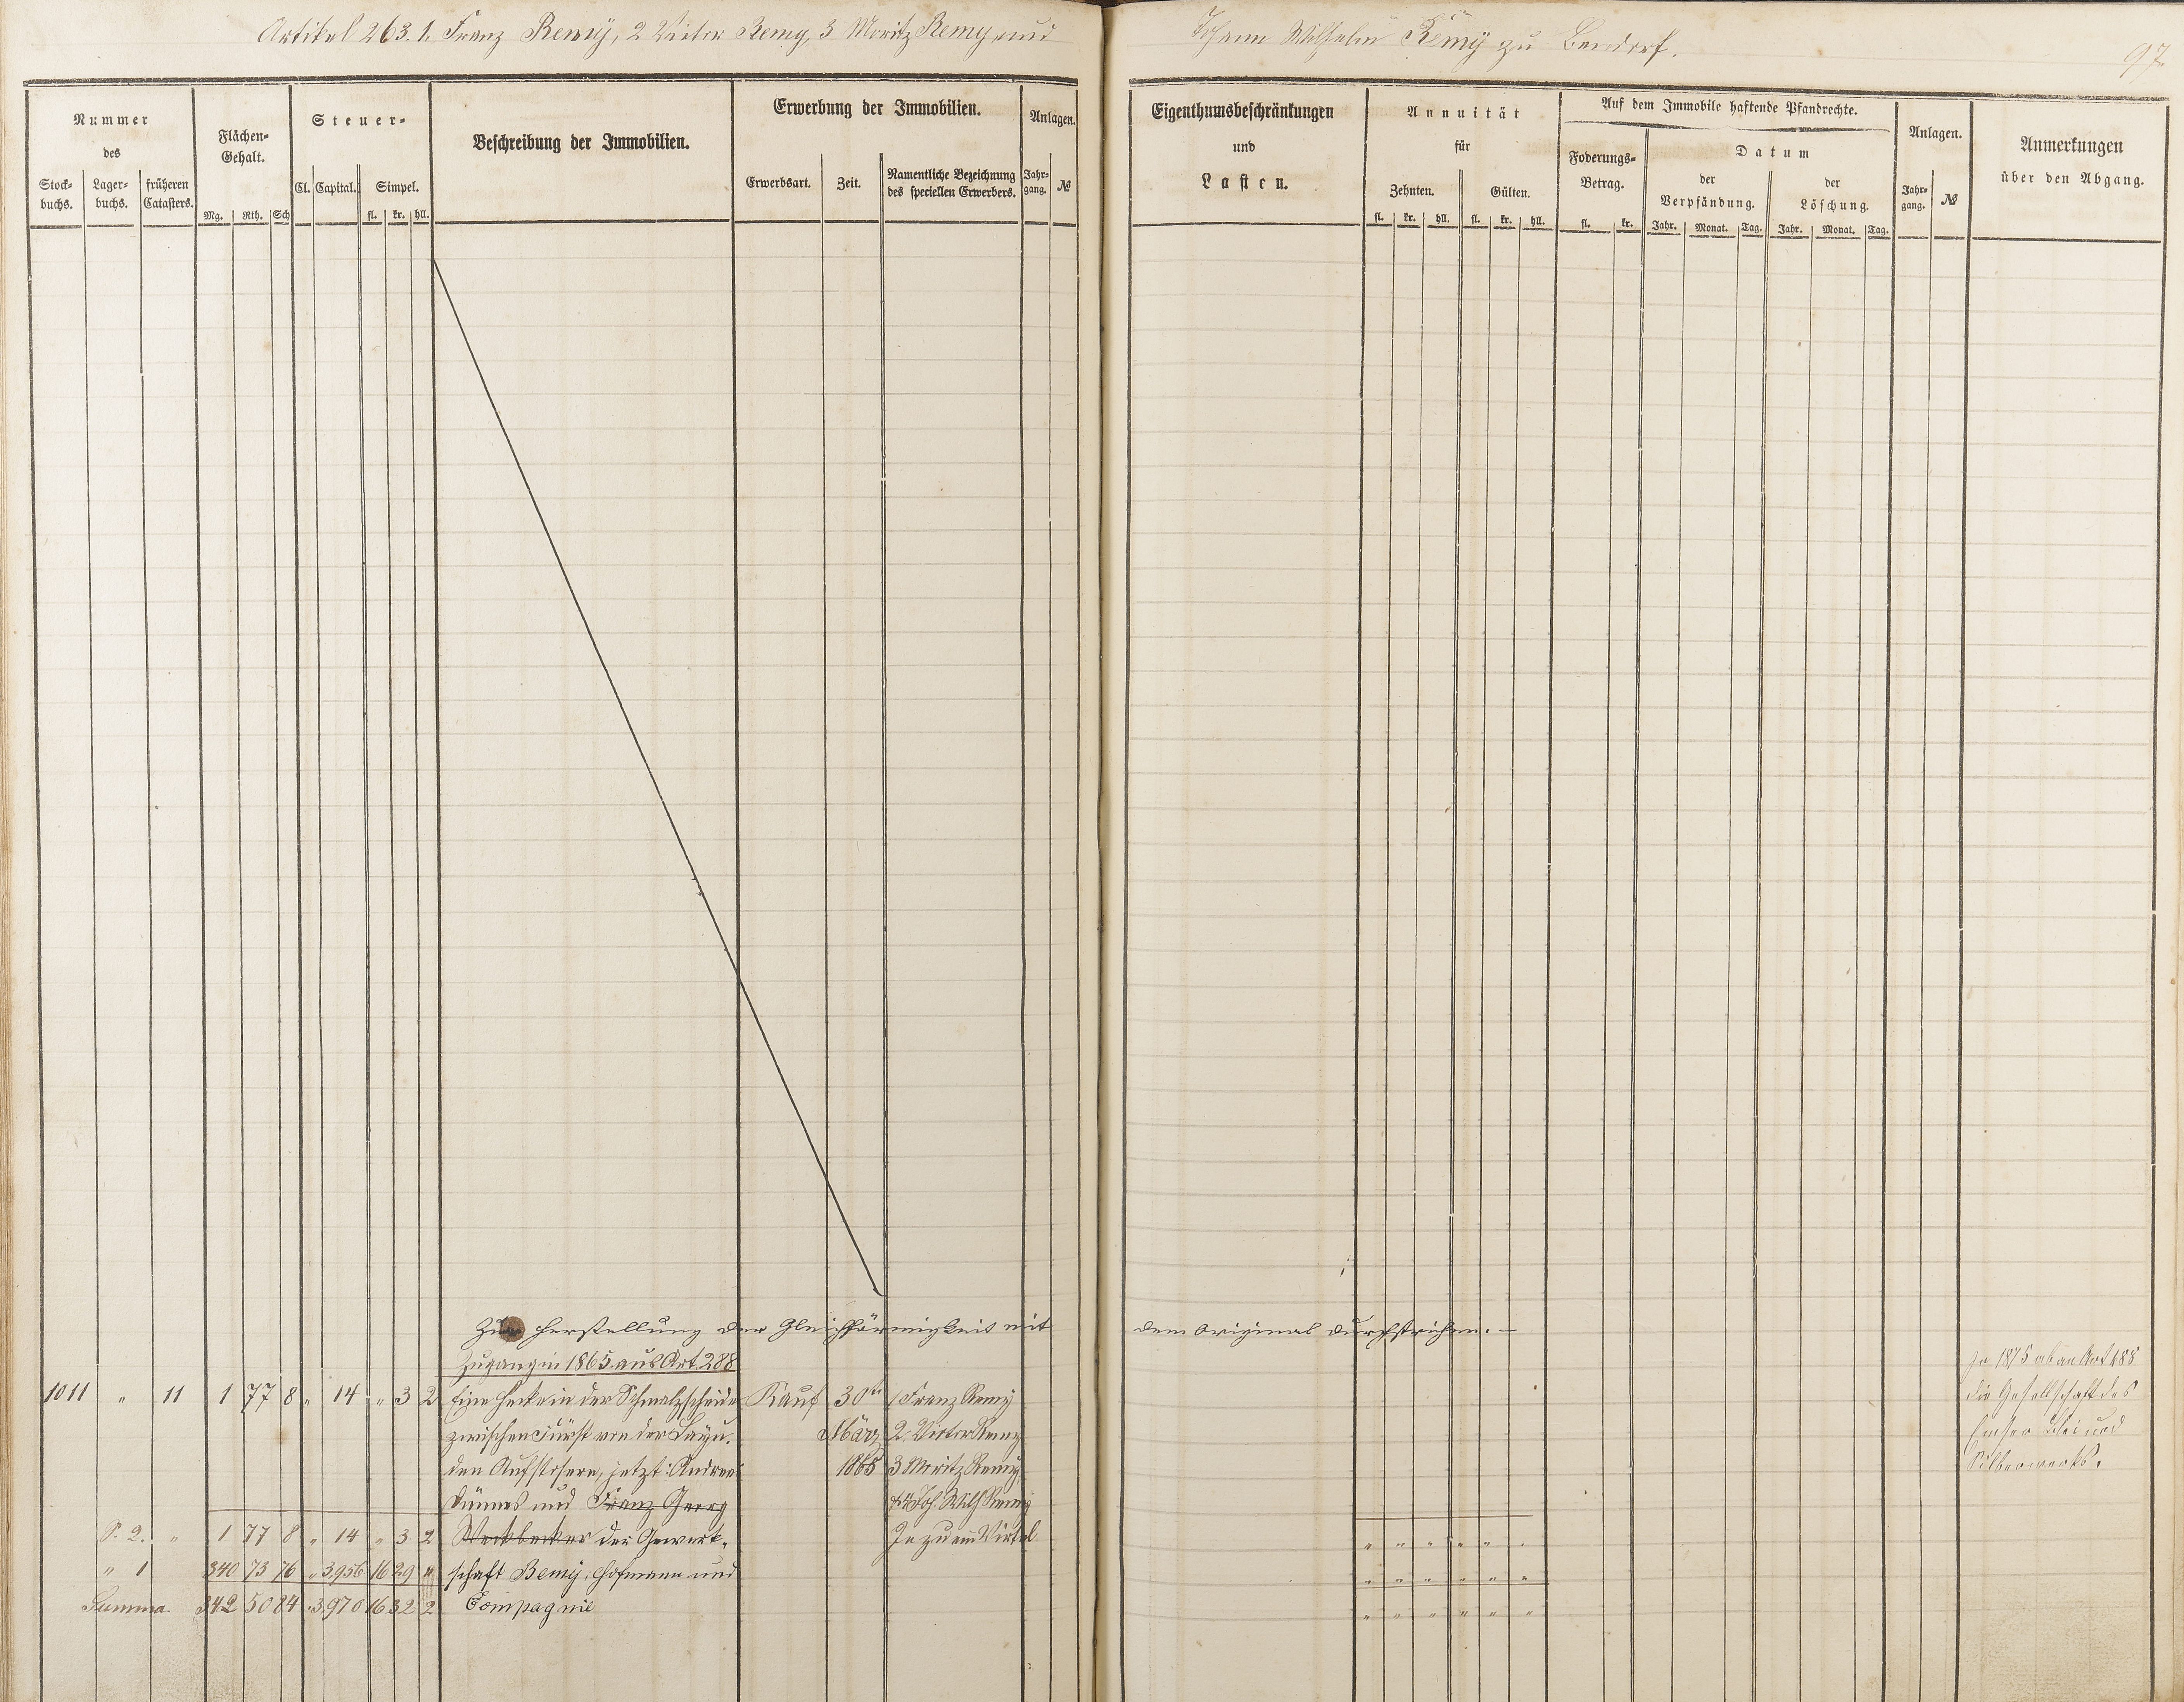 Artikel 263. 1. Franz Remÿ, 2 Victor Remy, 3 Moritz Remy, und
Johann Wilhelm Remÿ zu Bendorf.
97.
Nummer
des
Stock-
buchs.
Lager-
buchs.
früheren
Catasters.
Flächen-
Gehalt.
Mg. Rth. Sch
Steuer-
Cl. Capital. Simpel.
fl. kr. hll.
Beschreibung der Immobilien.
Erwerbung der Immobilien.
Erwerbsart. Zeit.
Namentliche Bezeichnung
des speciellen Erwerbers.
Anlagen.
Jahr-
gang. №
Eigenthumsbeschränkungen
und
Lasten.
Annuität
für
Zehnten. Gülten.
fl. kr. hll. fl. kr. hll.
Auf dem Immobile haftende Pfandrechte.
Foderungs-
Betrag.
fl. kr.
Datum
der
Verpfändung.
Jahr. Monat. Tag.
der
Löschung.
Jahr. Monat. Tag.
Anlagen.
Jahr-
gang. №
Anmerkungen
über den Abgang.
Zur Herstellung der Gleichförmigkeit mit dem Original durchstrichen. —
Zugang in 1865 aus Art. 288
1011 " 11 1 77 8 " 14 " 3 2 Eine Hecke in der Schmalzscheide Kauf 30ten 1 Franz Remy
zwischen Fürst von der Leyen. März 2. Victor Remy
den Aufstösern, jetzt: Andreas 1865 3 Moritz Remy
Dünnes und Franz Georg 4 Joh. Wilh Remy
P. 2. " 1 77 8 " 14 " 3 2 der Gewerk- Je zu ein Virtel " " " " " "
" 1 340 73 76 " 3,956 16 29 " schaft Remy, Hofmann und " " " " " "
Summa 342 50 84 . 3,970 16 32 2 Compagnie " " " " " "
In 1875 ab an Art 488
die Gesellschaft des
Emser Blei und
Silberwerks.